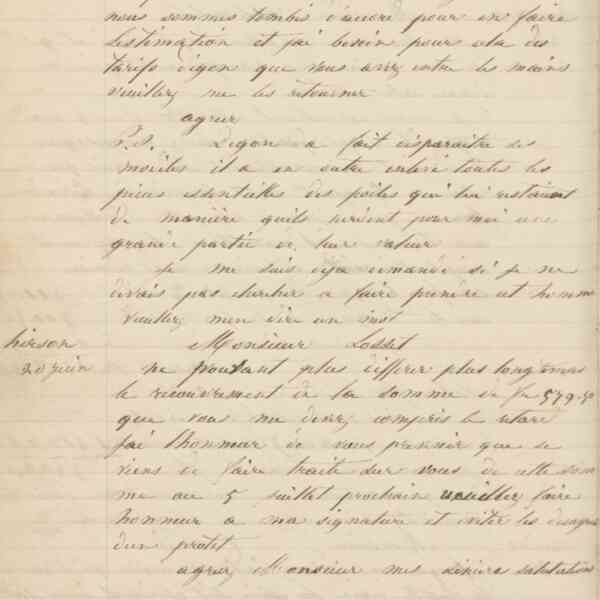 nous sommes tombés d'accord pour en faire
l'estimation et j'ai besoin pour cela des
tarifs Degon que vous avez entre les mains
veuillez me les retourner
agreer
P.S. Degon a fait disparaitre ses
modèles il a en outre enlevé toutes les
pièces essentielles des poêles qui lui restaient
de manière qu'ils perdent pour moi une
grande partie de leur valeur
Je me suis deja demandé si je ne
devais pas chercher a faire prendre cet homme
veuillez m'en dire un mot
hirson Monsieur Losset
20 juin ne pouvant plus differer plus longtemps
le recouvrement de la somme de fr 579.50
que vous me devez compris le retard
j'ai l'honneur de vous prevenir que je
viens de faire traite sur vous de cette som
me au 5 juillet prochain veuillez faire
honneur a ma signature et eviter les desagré
d'un protet
agreez Monsieur mes sincères salutations